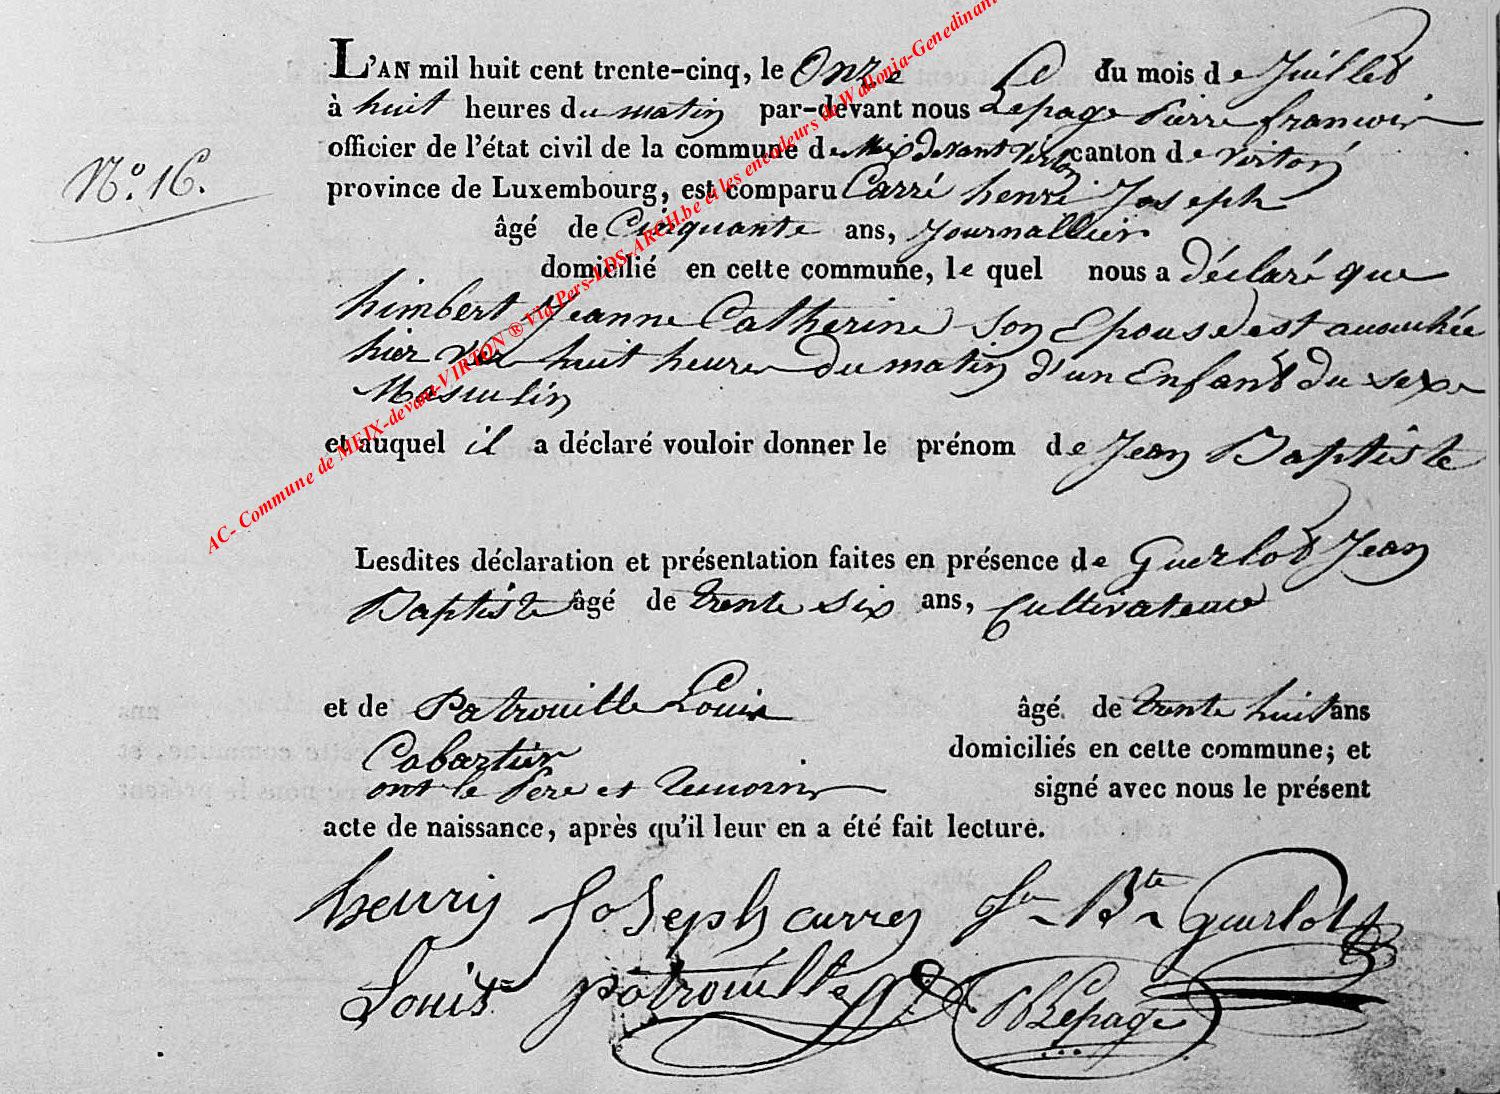 L'AN mil huit cent trente-cinq, le Onze du mois de Juillet
à huit heures du matin par-devant nous Lepage Pierre françois
officier de l'état civil de la commune de Meix devant Virton canton de Virton
N.° 16.
province de Luxembourg, est comparu Carré henri Joseph
âgé de Cinquante ans, Journallier
domicilié en cette commune, le quel nous a déclaré que
himbert Jeanne Catherine son Epouse est accouchée
hier vers huit heures du matin d'un Enfant du sexe
Masculin
et auquel il a déclaré vouloir donner le prénom de Jean Baptiste
Lesdites déclaration et présentation faites en présence de Guerlot Jean
Baptiste âgé de trente six ans, Cultivateur
et de Patrouille Louis âgé de trente huit ans
Cabartier domiciliés en cette commune; et
ont le Père et Temoins signé avec nous le présent
acte de naissance, après qu'il leur en a été fait lecture.
henrij Joseph carrez Jn Bte Guerlot
Louis patrouille Lepage
AC- Commune de MEIX-devant-VIRTON ® Via Pers-LDS-ARCH.be et les encodeurs de Wallonia-Genedinant